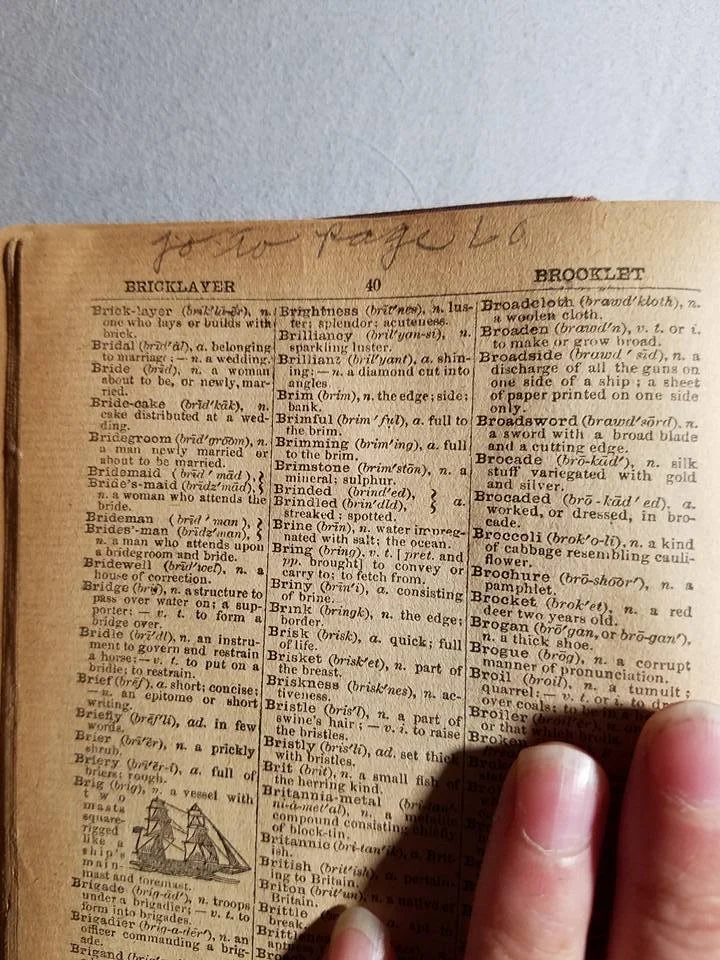 go to page 60
BRICKLAYER 40 BROOKLET
Brick-layer (brĭk'lā-ẽr), n.
one who lays or builds with
brick.
Bridal (brīd'ăl), a. belonging
to marriage; — n. a wedding.
Bride (brīd), n. a woman
about to be, or newly, mar-
ried.
Bride-cake (brīd'kāk), n.
cake distributed at a wed-
ding.
Bridegroom (brīd'grōōm), n.
a man newly married or
about to be married.
Bridemaid (brīd'mād),
Bride's-maid (brīdz'mād),
n. a woman who attends the
bride.
Brideman (brīd'man),
Brides'-man (brīdz'man),
n. a man who attends upon
a bridegroom and bride.
Bridewell (brīd'wel), n. a
house of correction.
Bridge (brij), n. a structure to
pass over water on; a sup-
porter; — v. t. to form a
bridge over.
Bridle (brī'dl), n. an instru-
ment to govern and restrain
a horse; — v. t. to put on a
bridle; to restrain.
Brief (brēf), a. short; concise;
— n. an epitome or short
writing.
Briefly (brēf'li), ad. in few
words.
Brier (brī'ẽr), n. a prickly
shrub.
Briery (brī'ẽr-i), a. full of
briers; rough.
Brig (brig), n. a vessel with
two
masts
square-
rigged
like a
ship's
main-
mast and foremast.
Brigade (brig-ād'), n. troops
under a brigadier; — v. t. to
form into brigades.
Brigadier (brig-a-dēr'), n. an
officer commanding a brig-
ade.
Brigand
Brightness (brīt'nes), n. lus-
ter; splendor; acuteness.
Brilliancy (bril'yan-si), n.
sparkling luster.
Brilliant (bril'yant), a. shin-
ing; — n. a diamond cut into
angles
Brim (brim), n. the edge; side;
bank.
Brimful (brim'ful), a. full to
the brim.
Brimming (brim'ing), a. full
to the brim.
Brimstone (brim'stōn), n. a
mineral; sulphur.
Brinded (brind'ed),
Brindled (brin'dld), a.
streaked; spotted.
Brine (brīn), n. water impreg-
nated with salt; the ocean.
Bring (bring), v. t. [pret. and
pp. brought] to convey or
carry to; to fetch from.
Briny (brīn'i), a. consisting
of brine.
Brink (bringk), n. the edge;
border.
Brisk (brisk), a. quick; full
of life.
Brisket (brisk'et), n. part of
the breast.
Briskness (brisk'nes), n. ac-
tiveness.
Bristle (bris'l), n. a part of
swine's hair; — v. i. to raise
the bristles.
Bristly (bris'li), ad. set thick
with bristles.
Brit (brit), n. a small fish of
the herring kind.
Britannia-metal
ni-a-met'al), n. a metallic
compound consisting chiefly
of block-tin.
Britannic (bri-tan'ik), a. Brit-
ish.
British (brit'ish), a. pertain-
ing to Britain.
Briton (brit'un), n. a native of
Britain.
Brittle
break.
Broadcloth (brawd'kloth), n.
a woolen cloth.
Broaden (brawd'n), v. t. or i.
to make or grow broad.
Broadside (brawd'sīd), n. a
discharge of all the guns on
one side of a ship; a sheet
of paper printed on one side
only.
Broadsword (brawd'sōrd), n.
a sword with a broad blade
and a cutting edge.
Brocade (brō-kād'), n. silk
stuff variegated with gold
and silver.
Brocaded (brō-kād'ed), a.
worked, or dressed, in bro-
cade.
Broccoli (brok'o-li), n. a kind
of cabbage resembling cauli-
flower.
Brochure (brō-shōōr'), n. a
pamphlet.
Brocket (brok'et), n. a red
deer two years old.
Brogan (brō'gan, or brō-gan'),
n. a thick shoe.
Brogue (brōg), n. a corrupt
manner of pronunciation.
Broil (broil), n. a tumult;
quarrel; — v. t. or i. to dress
over coals; to be in a heat
Broiler (broil'ẽr), n.
or that which broils.
Broken